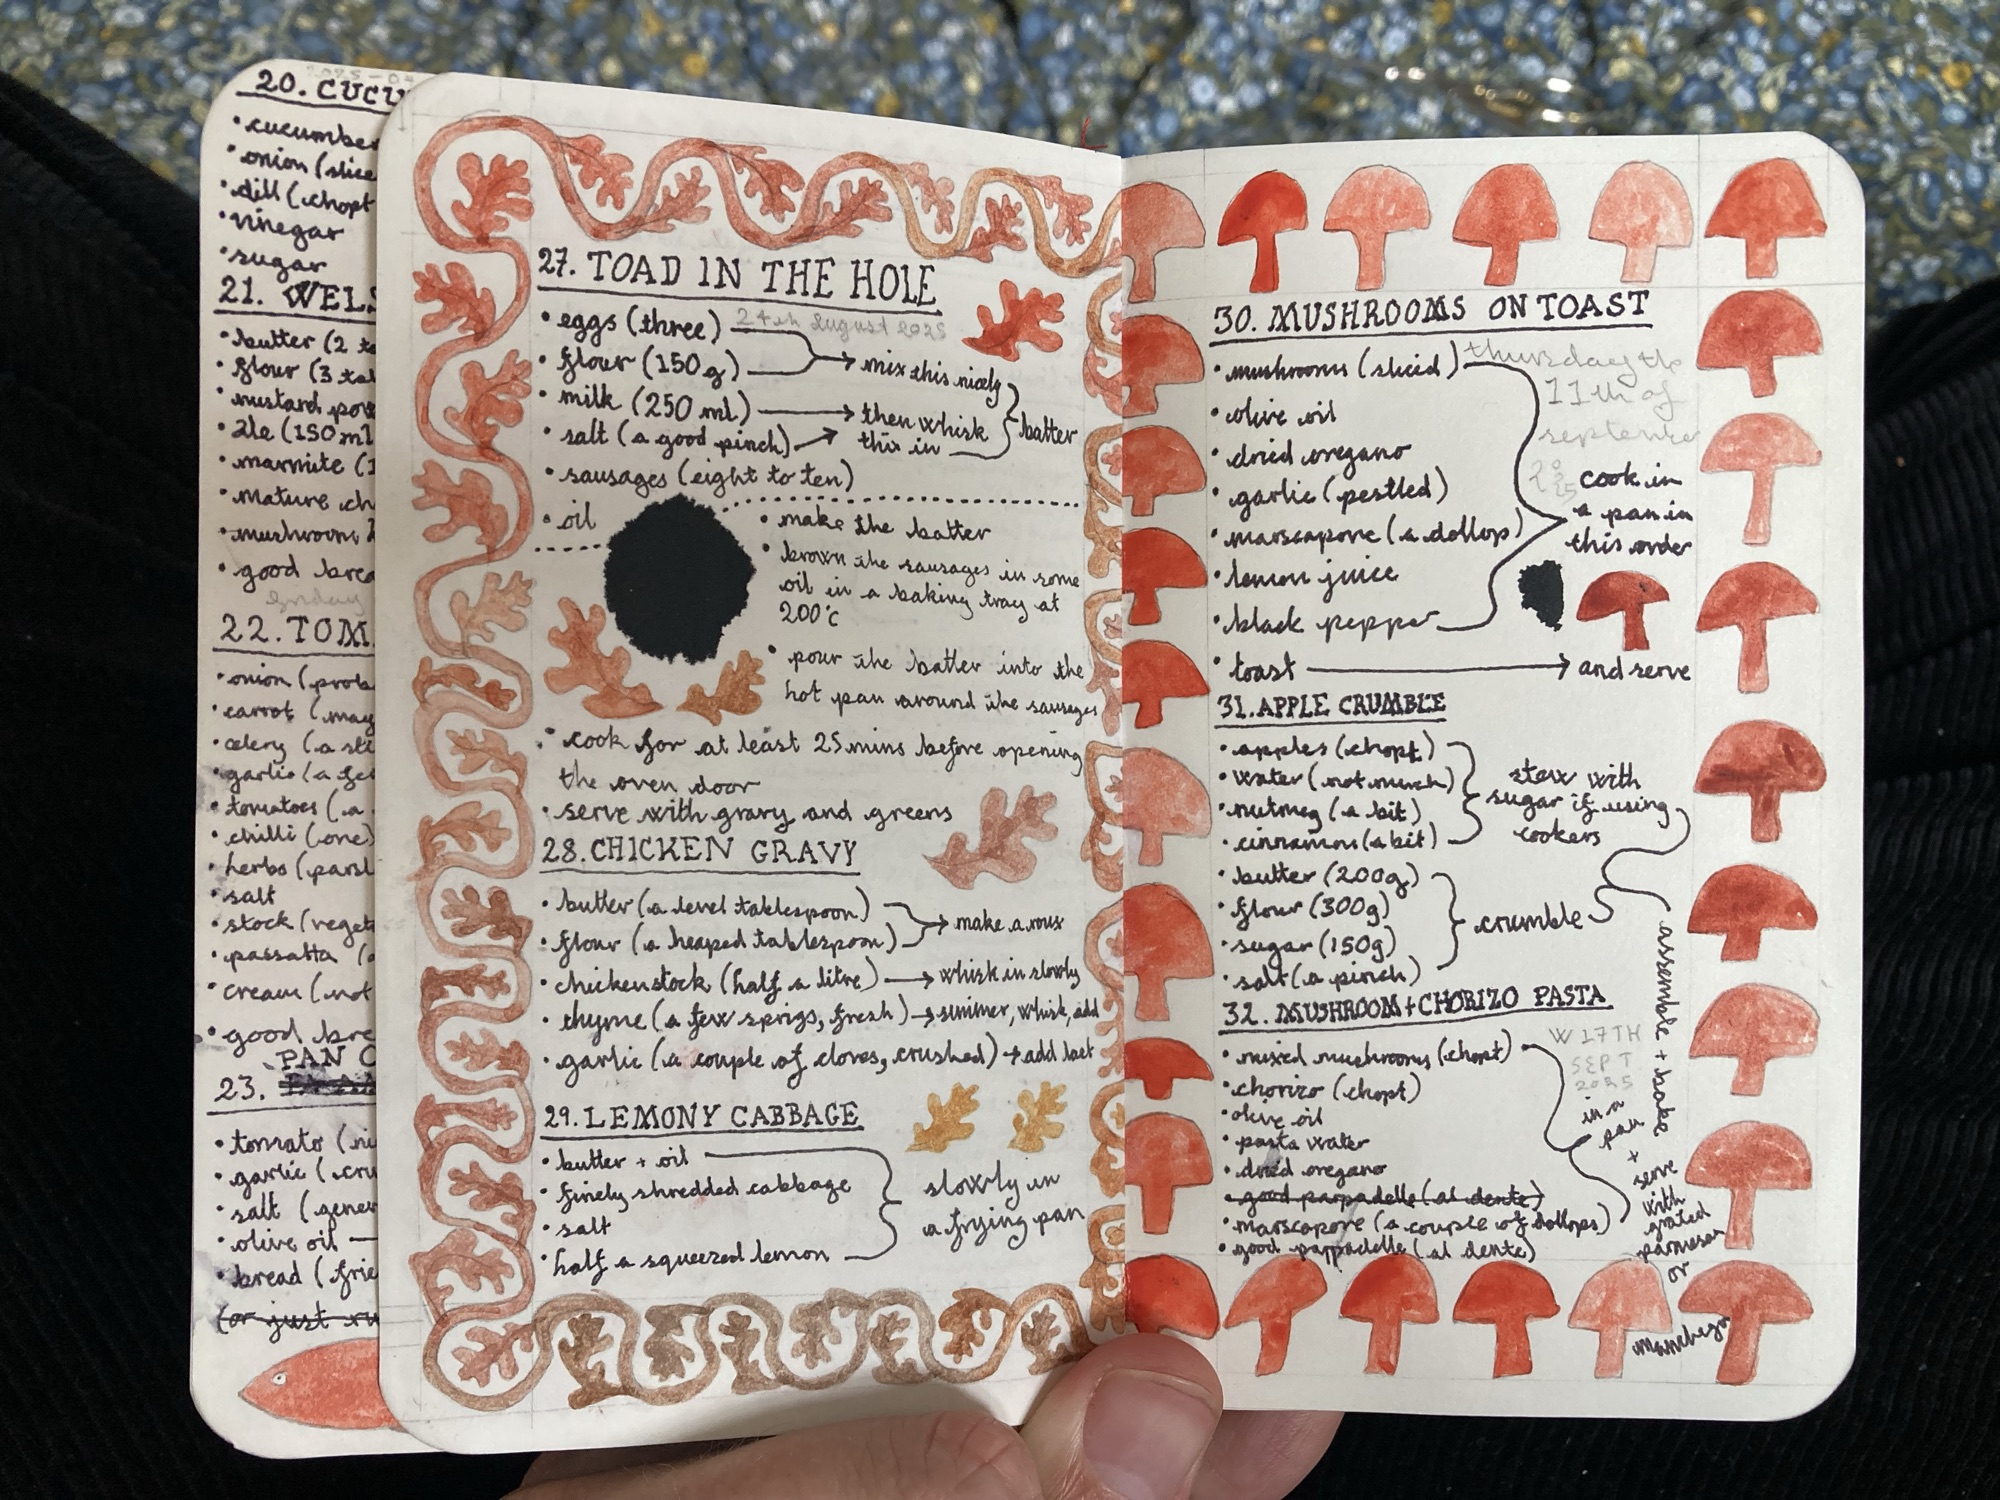 2025-04
20. CUCU
• cucumbe
• onion (slice
• dill (chopt
• vinegar
• sugar
21. WELS
• butter (2 ta
• flour (3 tab
• mustard pow
• ale (150ml
• marmite (1
• mature ch
• mushroom k
• good brea
Sunday
22. TOM
• onion (prob
• carrot (may
• celery (a sti
• garlic (a few
• tomatoes (a
• chilli (one)
• herbs (parsl
• salt
• stock (veget
• passatta (a
• cream (not
• good bre
PAN C
23.
• tomato (ni
• garlic (cru
• salt (gener
• olive oil
• bread (frie
(or just ru
27. TOAD IN THE HOLE
• eggs (three) 24th August 2025
• flour (150g) mix this nicely
• milk (250 ml) then whisk
• salt (a good pinch) this in batter
• sausages (eight to ten)
• oil
• make the batter
• brown the sausages in some
oil in a baking tray at
200°c
• pour the batter into the
hot pan around the sausages
• cook for at least 25mins before opening
the oven door
• serve with gravy and greens
28. CHICKEN GRAVY
• butter (a level tablespoon)
• flour (a heaped tablespoon) make a roux
• chicken stock (half a litre) whisk in slowly
• thyme (a few sprigs, fresh) simmer, whisk, add
• garlic (a couple of cloves, crushed) add last
29. LEMONY CABBAGE
• butter + oil
• finely shredded cabbage slowly in
• salt a frying pan
• half a squeezed lemon
30. MUSHROOMS ON TOAST
• mushrooms (sliced) thursday the
• olive oil 11th of
• dried oregano september
• garlic (pestled) 2025 cook in
• marscapone (a dollop) a pan in
• lemon juice this order
• black pepper
• toast and serve
31. APPLE CRUMBLE
• apples (chopt)
• water (not much) stew with
• nutmeg (a bit) sugar if using
• cinnamon (a bit) cookers
• butter (200g)
• flour (300g)
• sugar (150g) crumble
• salt (a pinch)
assemble + bake
32. MUSHROOM + CHORIZO PASTA
• mixed mushrooms (chopt) W 17TH
• chorizo (chopt) SEPT
• olive oil 2025
• pasta water in a
• dried oregano pan
• good parpadelle (al dente) +
• marscapone (a couple of dollops) serve
• good pappadelle (al dente) with
grated
parmesan
or
manchego